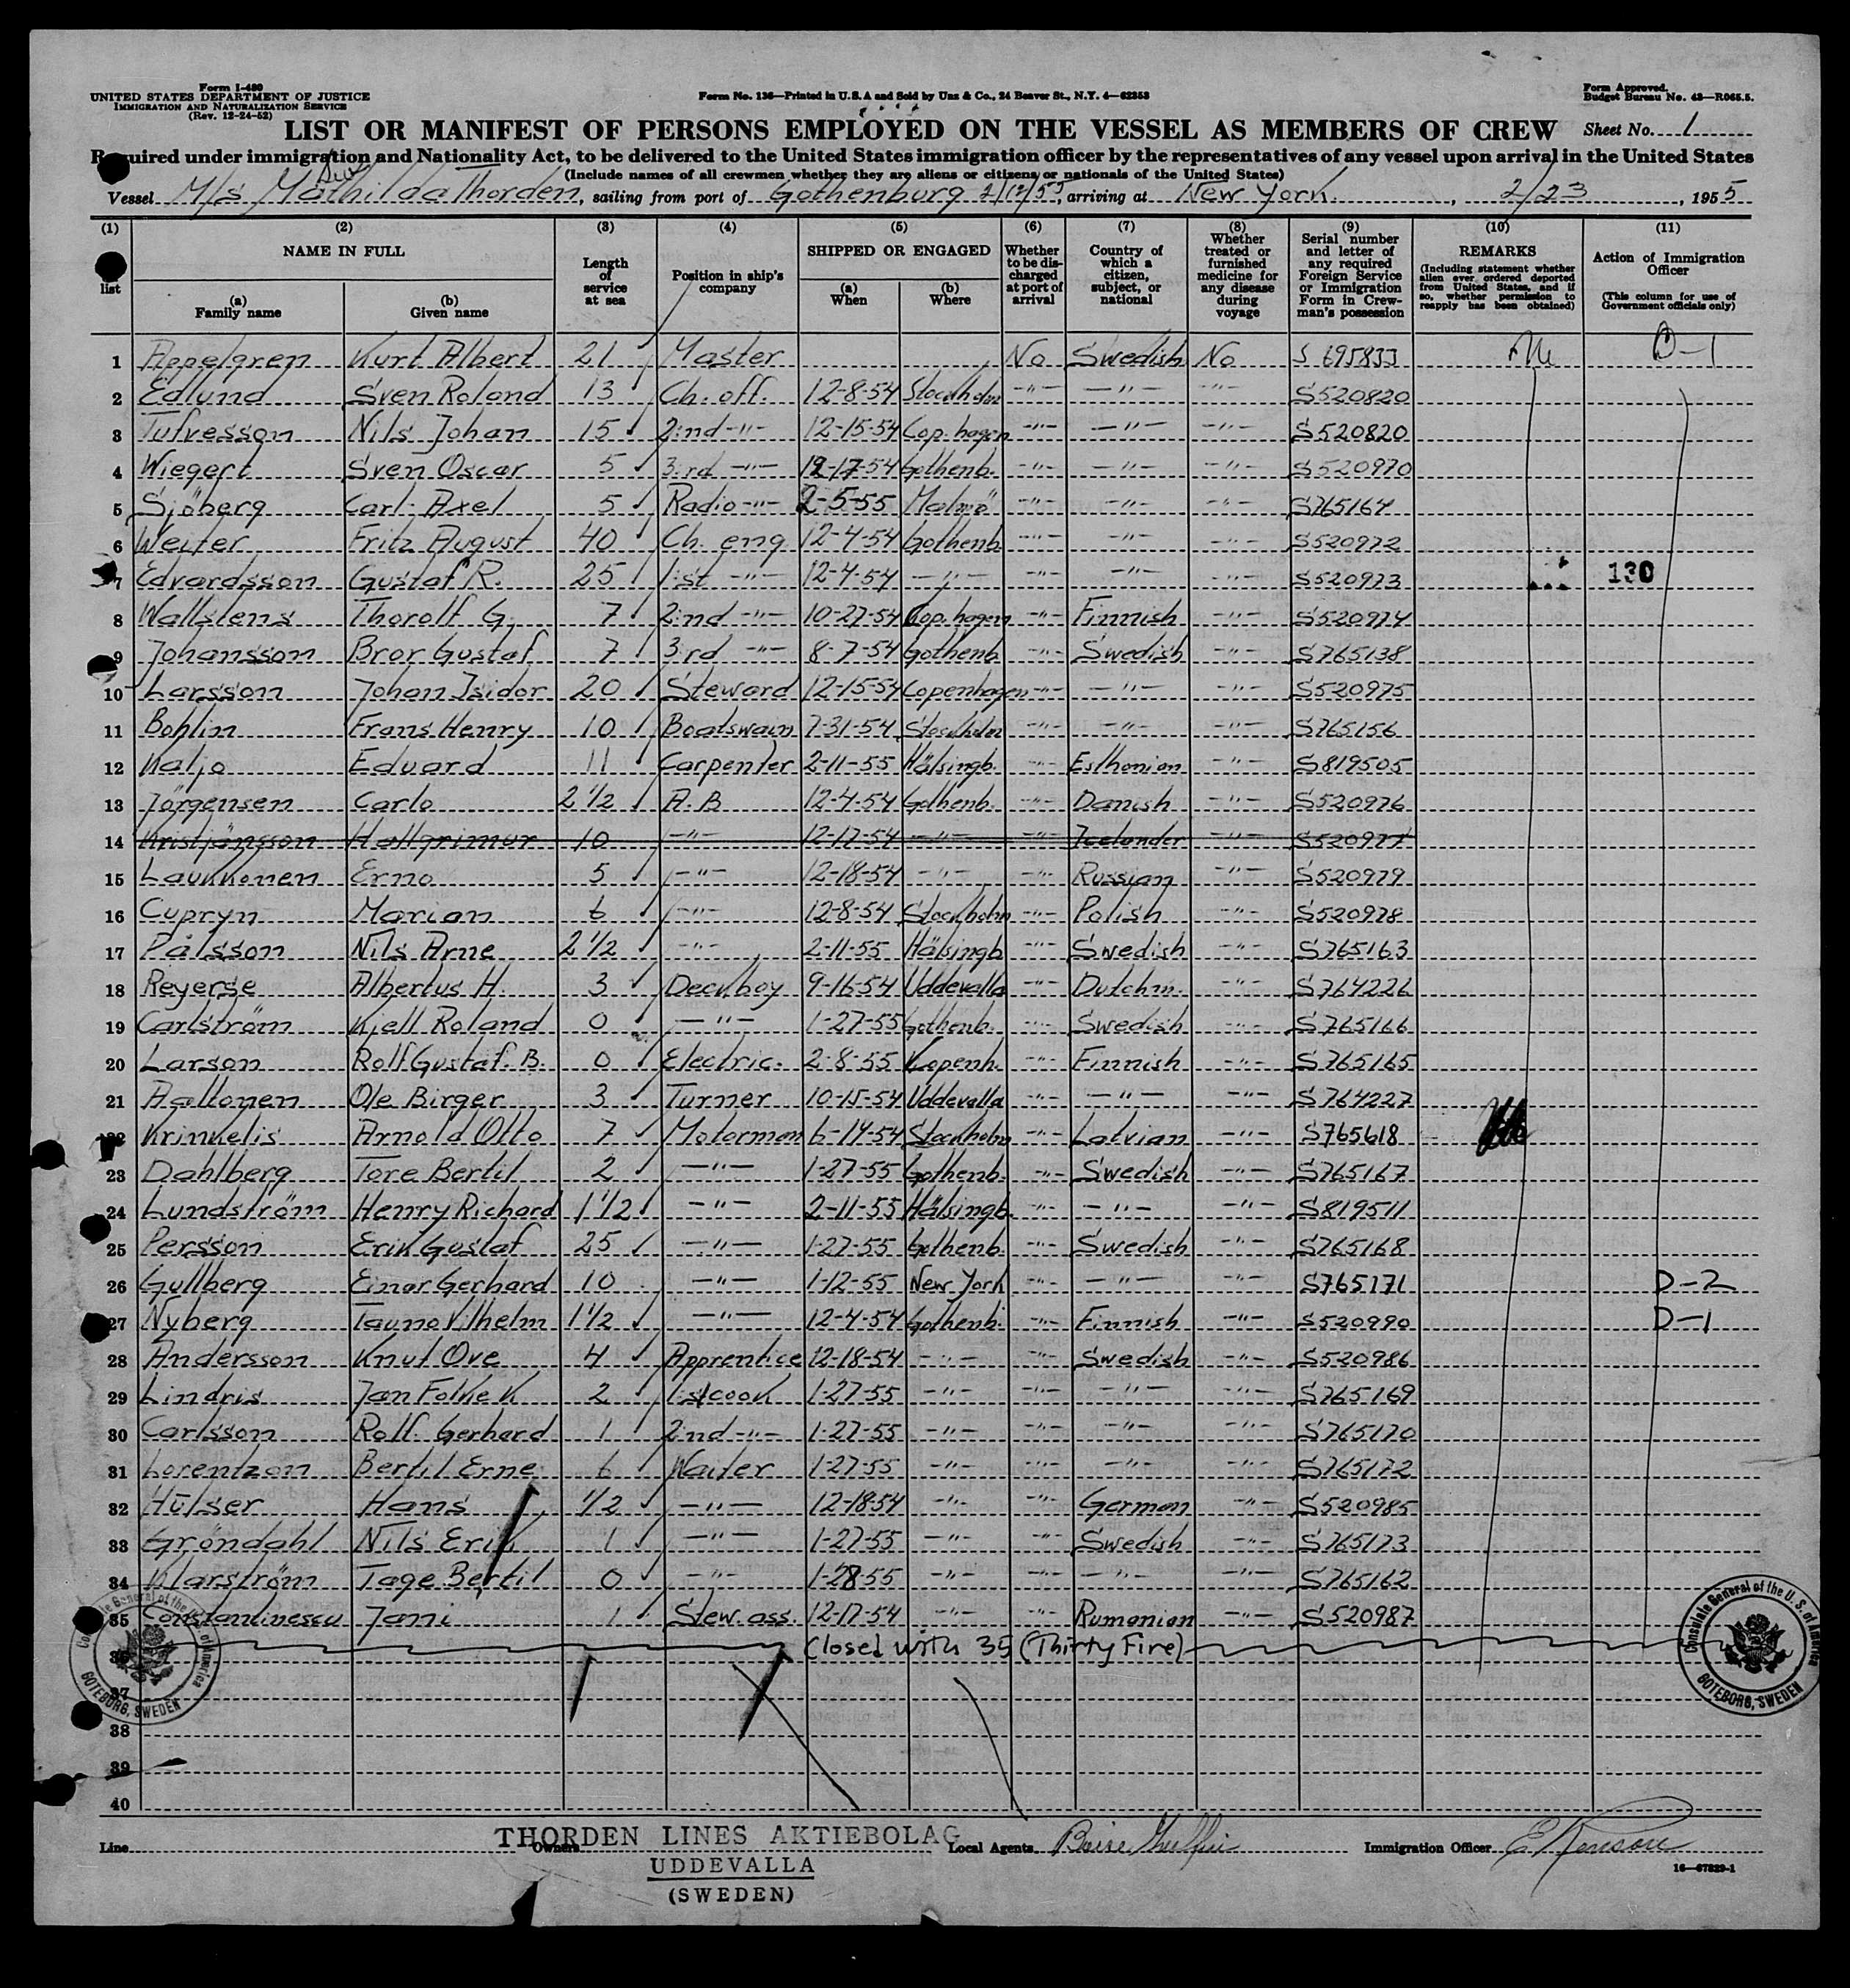 Form I-480
UNITED STATES DEPARTMENT OF JUSTICE
IMMIGRATION AND NATURALIZATION SERVICE
(Rev. 12-24-52)
Form No. 136—Printed in U.S.A and Sold by Unz & Co., 24 Beaver St., N.Y. 4—62353
Form Approved.
Budget Bureau No. 43—R065.5.
LIST OR MANIFEST OF PERSONS EMPLOYED ON THE VESSEL AS MEMBERS OF CREW
Sheet No. 1
Required under immigration and Nationality Act, to be delivered to the United States immigration officer by the representatives of any vessel upon arrival in the United States
(Include names of all crewmen whether they are aliens or citizens or nationals of the United States)
Vessel M/s Mathilda Thorden, sailing from port of Gothenburg 2/12/55, arriving at New York., 2/23, 1955
(1) (2) (3) (4) (5) (6) (7) (8) (9) (10) (11)
list
NAME IN FULL
(a) Family name
(b) Given name
Length of service at sea
Position in ship's company
SHIPPED OR ENGAGED
(a) When
(b) Where
Whether to be discharged at port of arrival
Country of which a citizen, subject, or national
Whether treated or furnished medicine for any disease during voyage
Serial number and letter of any required Foreign Service or Immigration Form in Crewman's possession
REMARKS
(Including statement whether alien ever ordered deported from United States, and if so, whether permission to reapply has been obtained)
Action of Immigration Officer
(This column for use of Government officials only)
1 Appelgren Kurt Albert 21 Master No Swedish No S 695833 D-1
2 Edlund Sven Roland 13 Ch. off. 12-8-54 Stockholm -"- -"- -"- S520820
3 Tufvesson Nils Johan 15 2:nd -"- 12-15-54 Cop.hagen -"- -"- -"- S520820
4 Wiegert Sven Oscar 5 3:rd -"- 12-17-54 Gothenb. -"- -"- -"- S520970
5 Sjöberg Carl-Axel 5 Radio -"- 2-5-55 Malmö -"- -"- -"- S765164
6 Weiter Fritz August 40 Ch. eng 12-4-54 Gothenb -"- -"- -"- S520972
7 Edvardsson Gustaf R. 25 1:st -"- 12-4-54 -"- -"- -"- -"- S520973 130
8 Wallstens Thorolf G. 7 2:nd -"- 10-27-54 Cop.hagen -"- Finnish -"- S520974
9 Johansson Bror Gustaf 7 3:rd -"- 8-7-54 Gothenb -"- Swedish -"- S765138
10 Larsson Johan Isidor 20 Steward 12-15-54 Copenhagen -"- -"- -"- S520975
11 Bohlin Frans Henry 10 Boatswain 7-31-54 Stockholm -"- -"- -"- S765156
12 Kaljo Eduard 11 Carpenter 2-11-55 Hälsingb. -"- Esthonian -"- S819505
13 Jörgensen Carlo 2 1/2 A.B 12-4-54 Gothenb. -"- Danish -"- S520976
14 Kristjánsson Hallgrimur 10 -"- 12-17-54 -"- -"- Icelander -"- S520977
15 Laukkonen Erno 5 -"- 12-18-54 -"- -"- Russian -"- S520979
16 Cupryn Marian 6 -"- 12-8-54 Stockholm -"- Polish -"- S520978
17 Pålsson Nils Arne 2 1/2 -"- 2-11-55 Hälsingb -"- Swedish -"- S765163
18 Reyerse Albertus H. 3 Deckboy 9-16-54 Uddevalla -"- Dutchm. -"- S764226
19 Carlström Kjell Roland 0 -"- 1-27-55 Gothenb. -"- Swedish -"- S765166
20 Larson Rolf Gustaf. B. 0 Electric. 2-8-55 Kopenh. -"- Finnish -"- S765165
21 Aaltonen Ole Birger 3 Turner 10-15-54 Uddevalla -"- -"- -"- S764227
22 Krinkelis Arnold Otto 7 Motorman 6-14-54 Stockholm -"- Latvian -"- S765618
23 Dahlberg Tore Bertil 2 -"- 1-27-55 Gothenb. -"- Swedish -"- S765167
24 Lundström Henry Richard 1 1/2 -"- 2-11-55 Hälsingb. -"- -"- -"- S819511
25 Persson Erik Gustaf 25 -"- 1-27-55 Gothenb -"- Swedish -"- S765168
26 Gullberg Einar Gerhard 10 -"- 1-12-55 New York -"- -"- S765171 D-2
27 Nyberg Tauno Vilhelm 1 1/2 -"- 12-4-54 Gothenb. -"- Finnish -"- S520990 D-1
28 Andersson Knut Ove 4 Apprentice 12-18-54 -"- -"- Swedish -"- S520986
29 Lindris Jan Folke K 2 1:st cook 1-27-55 -"- -"- -"- -"- S765169
30 Carlsson Rolf. Gerhard 1 2:nd -"- 1-27-55 -"- -"- -"- -"- S765170
31 Lorentzon Bertil Erne 6 Waiter 1-27-55 -"- -"- -"- -"- S765172
32 Hülser Hans 1/2 -"- 12-18-54 -"- -"- German -"- S520985
33 Gröndahl Nils Erik 1 -"- 1-27-55 -"- -"- Swedish -"- S765173
34 Klarström Tage Bertil 0 -"- 1-28-55 -"- -"- -"- -"- S765162
35 Constantinescu Jani 1 Stew. ass. 12-17-54 -"- -"- Rumanian -"- S520987
36 Closed with 35 (Thirty Five)
37
38
39
40
Consulate General of the U.S. of America
GOTEBORG, SWEDEN
Consulate General of the U.S. of America
GOTEBORG, SWEDEN
Line Owners THORDEN LINES AKTIEBOLAG Local Agents Immigration Officer
UDDEVALLA
(SWEDEN)
16—67329-1